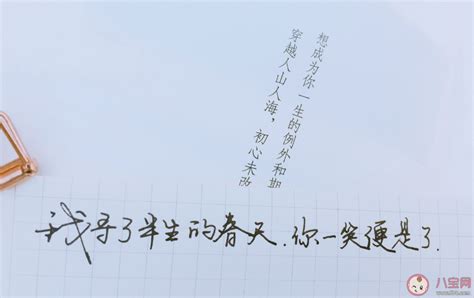 想成为你一生的例外和
穿越人山人海，初心未改
我寻了半生的春天，你一笑便是了.
八宝网